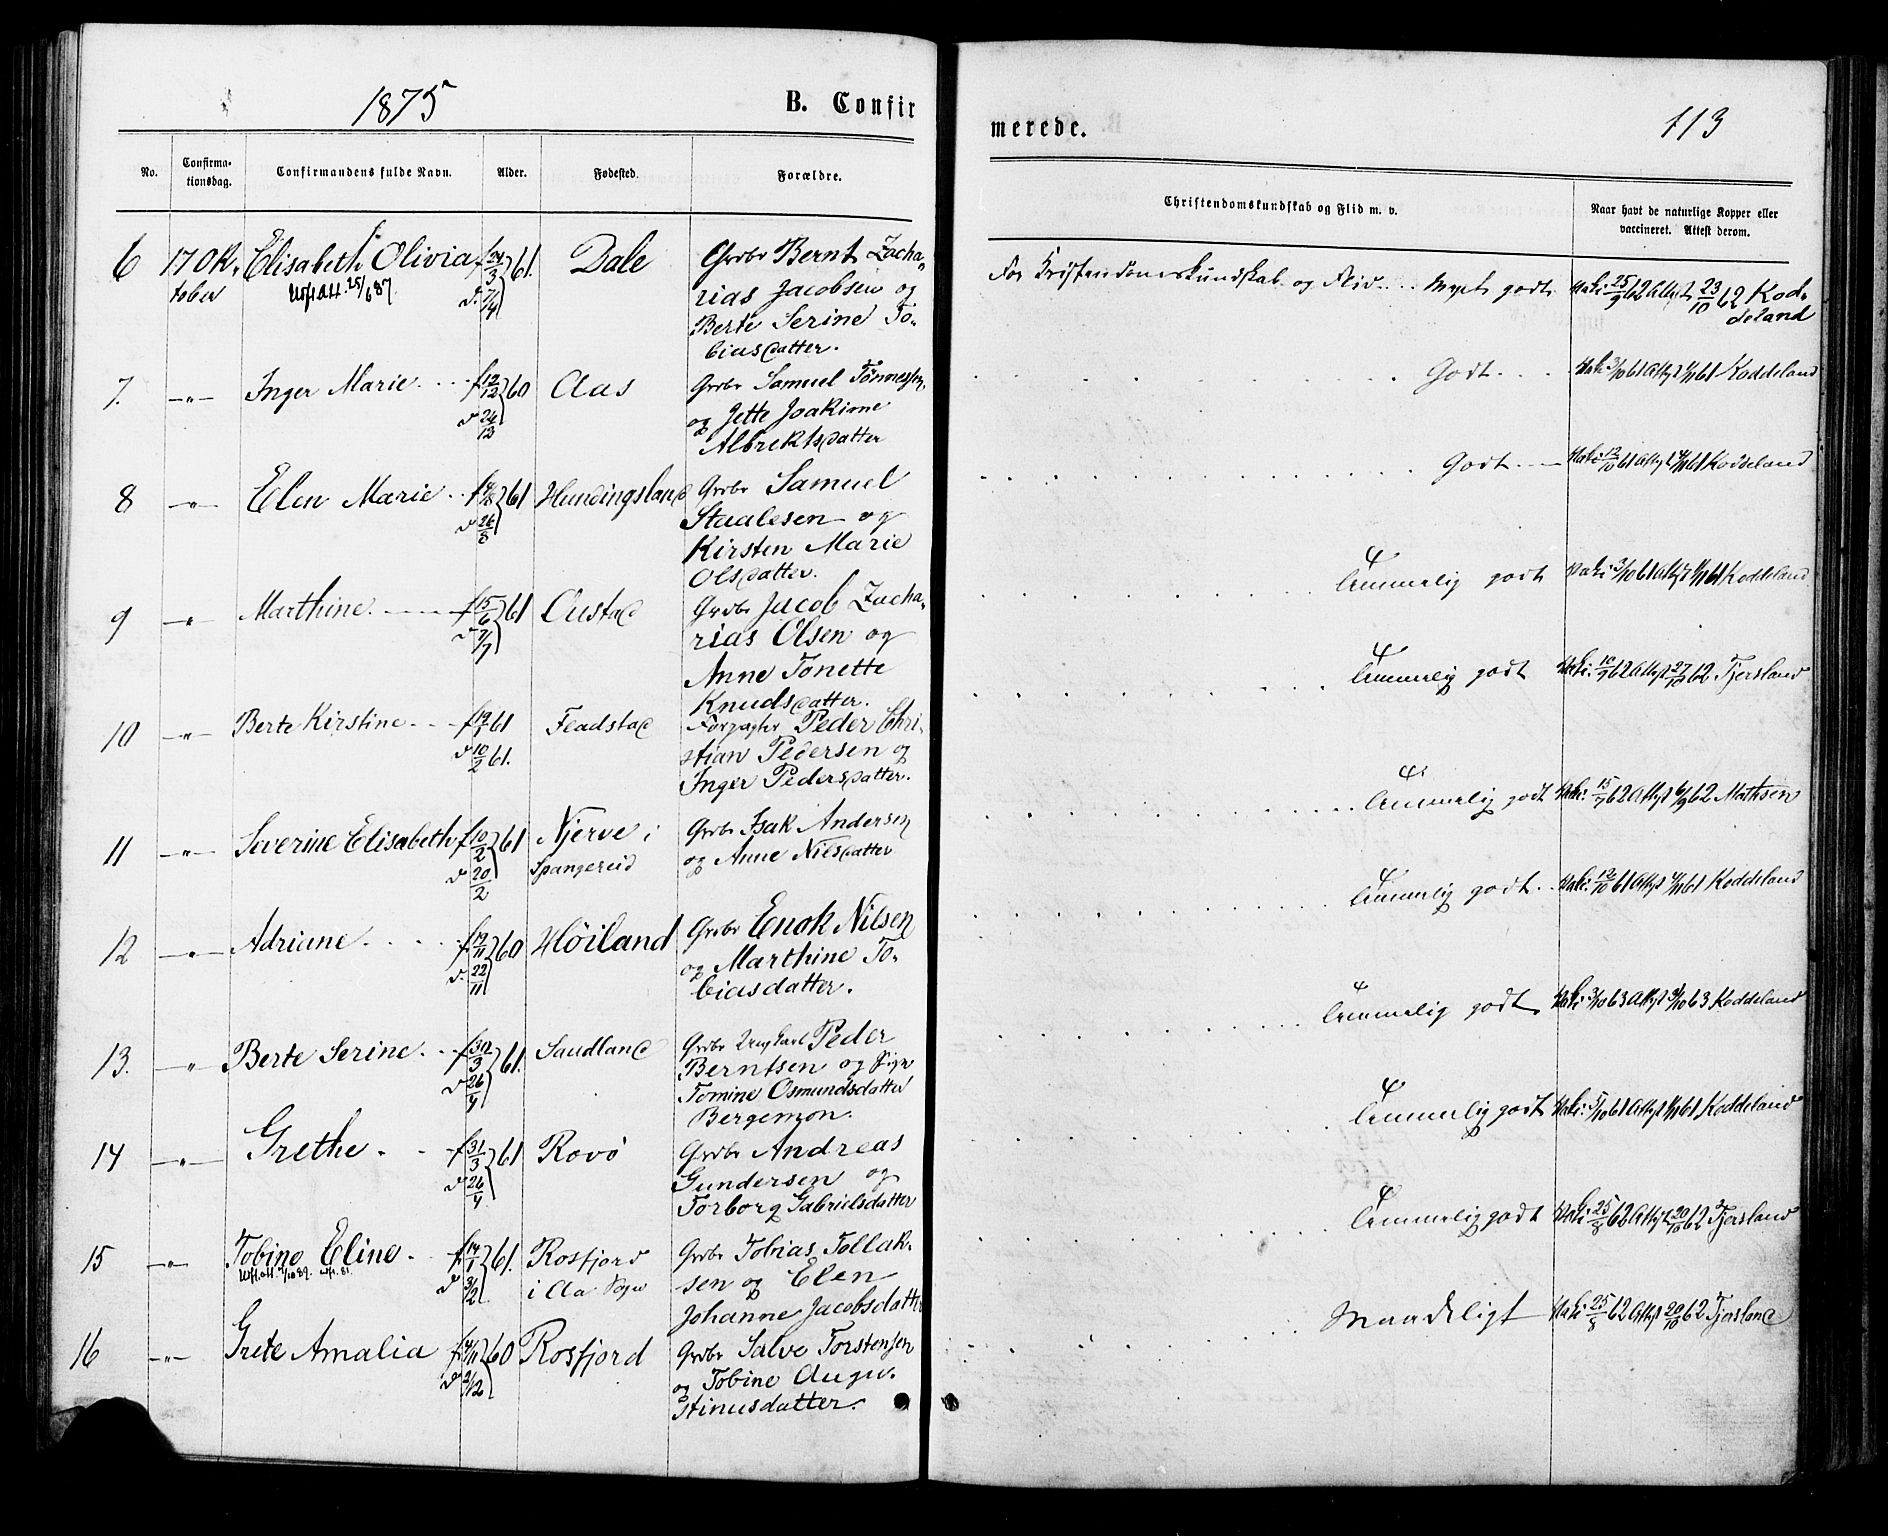 1875
B. Confir
merede.
113
No.
Confirma-
tionsdag.
Confirmandens fulde Navn.
Alder.
Fødested.
Forældre.
Christendomskundskab og Flid m. v.
Naar havt de naturlige Kopper eller
vaccineret. Attest derom.
6 17 Ok- Elisabeth Olivia f 24/3 61. Dale Grdbr Bernt Zacha-
tober d. 7/4 rias Jacobsen og
Berte Serine To-
biasdatter.
For Kristendomskundskab og Flid Meget godt 25/9 62 Attest 23/10 62 Kod-
deland
7. -"- Inger Marie f 12/12 60 Aas Grdbr Samuel Tønnessen
d 26/12 og Jette Joakime
Albrektsdatter
Godt 3/10 61 Attest 61 Koddeland
8 -"- Elen Marie 61 Hundingsland Grdbr Samuel
d 26/8 Staalesen og
Kirsten Marie
Olsdatter.
Godt 12/10 61 Attest 61 Koddeland
9 -"- Marthine f 15/6 61 Oustad Grdbr Jacob Zacha-
d 7/7 rias Olsen og
Anne Tonette
Knudsdatter.
Temmelig godt 3/10 61 Attest 61 Koddeland
10 -"- Berte Kirstine 61 Feadstad Forpagter Peder Chri-
d 10/2 61. stian Pedersen og
Inger Pedersdatter.
Temmelig godt 10/9 62 Attest 27/10 62 Tjersland
11 -"- Severine Elisabeth f 10/2 61 Njerve i Grdbr Isak Andersen
d 20/2 Spangereid og Anne Nilsdatter
Temmelig godt 15/7 62 Attest 6/9 62 Mathsen
12 -"- Adriane f 14/11 60 Høiland Grdbr Enok Nilsen
d. 22/11 og Marthine To-
biasdatter.
Temmelig godt 12/10 61 Attest 61 Koddeland
13. -"- Berte Serine f 30/3 61. Sandland Grdbr Ungkarl Peder
d 26/4 Berntsen og Pige
Tomine Osmundsdatter
Bergemon.
Temmelig godt 3/10 63 Attest 63 Koddeland
14 -"- Grethe f 31/3 61 Rovø Grdbr Andreas
d 26/4 Gundersen og
Torborg Gabrielsdatter
Temmelig godt 5/10 61 Attest 61 Koddeland
15 -"- Tobine Eline f 14/1 61. Rosfjord Grdbr Tobias Tollak-
d 3/2 i Aa Sogn sen og Elen
Johanne Jacobsdatter
Temmelig godt 25/8 62 Attest 20/10 62 Tjersland
16 -"- Grete Amalia 60 Rosfjord Grdbr Salve Torstensen
d 2/12 og Tobine Augu-
stinusdatter.
Maadeligt 25/8 62 Attest 20/10 62 Tjersland